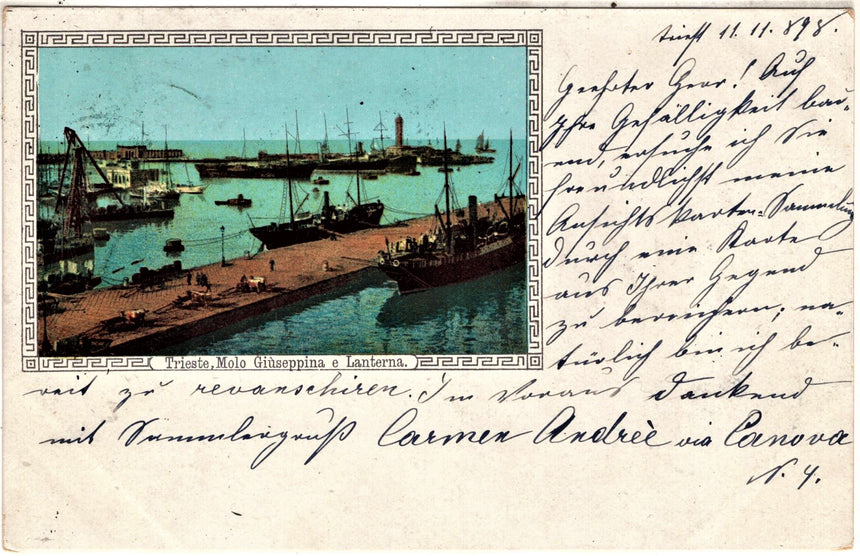 Triest 11. 11. 898.
Geehrter Herr! Auf
Ihre Gefälligkeit bau-
end, ersuche ich Sie
freundlichst meine
Ansichtskarten-Sammlung
durch eine Karte
aus Ihrer Gegend
zu bereichern; na-
türlich bin ich be-
Trieste, Molo Giùseppina e Lanterna.
reit zu revanschiren. Im Voraus dankend
mit Sammlergruß Carmen Andrèe via Canova
N. 4.